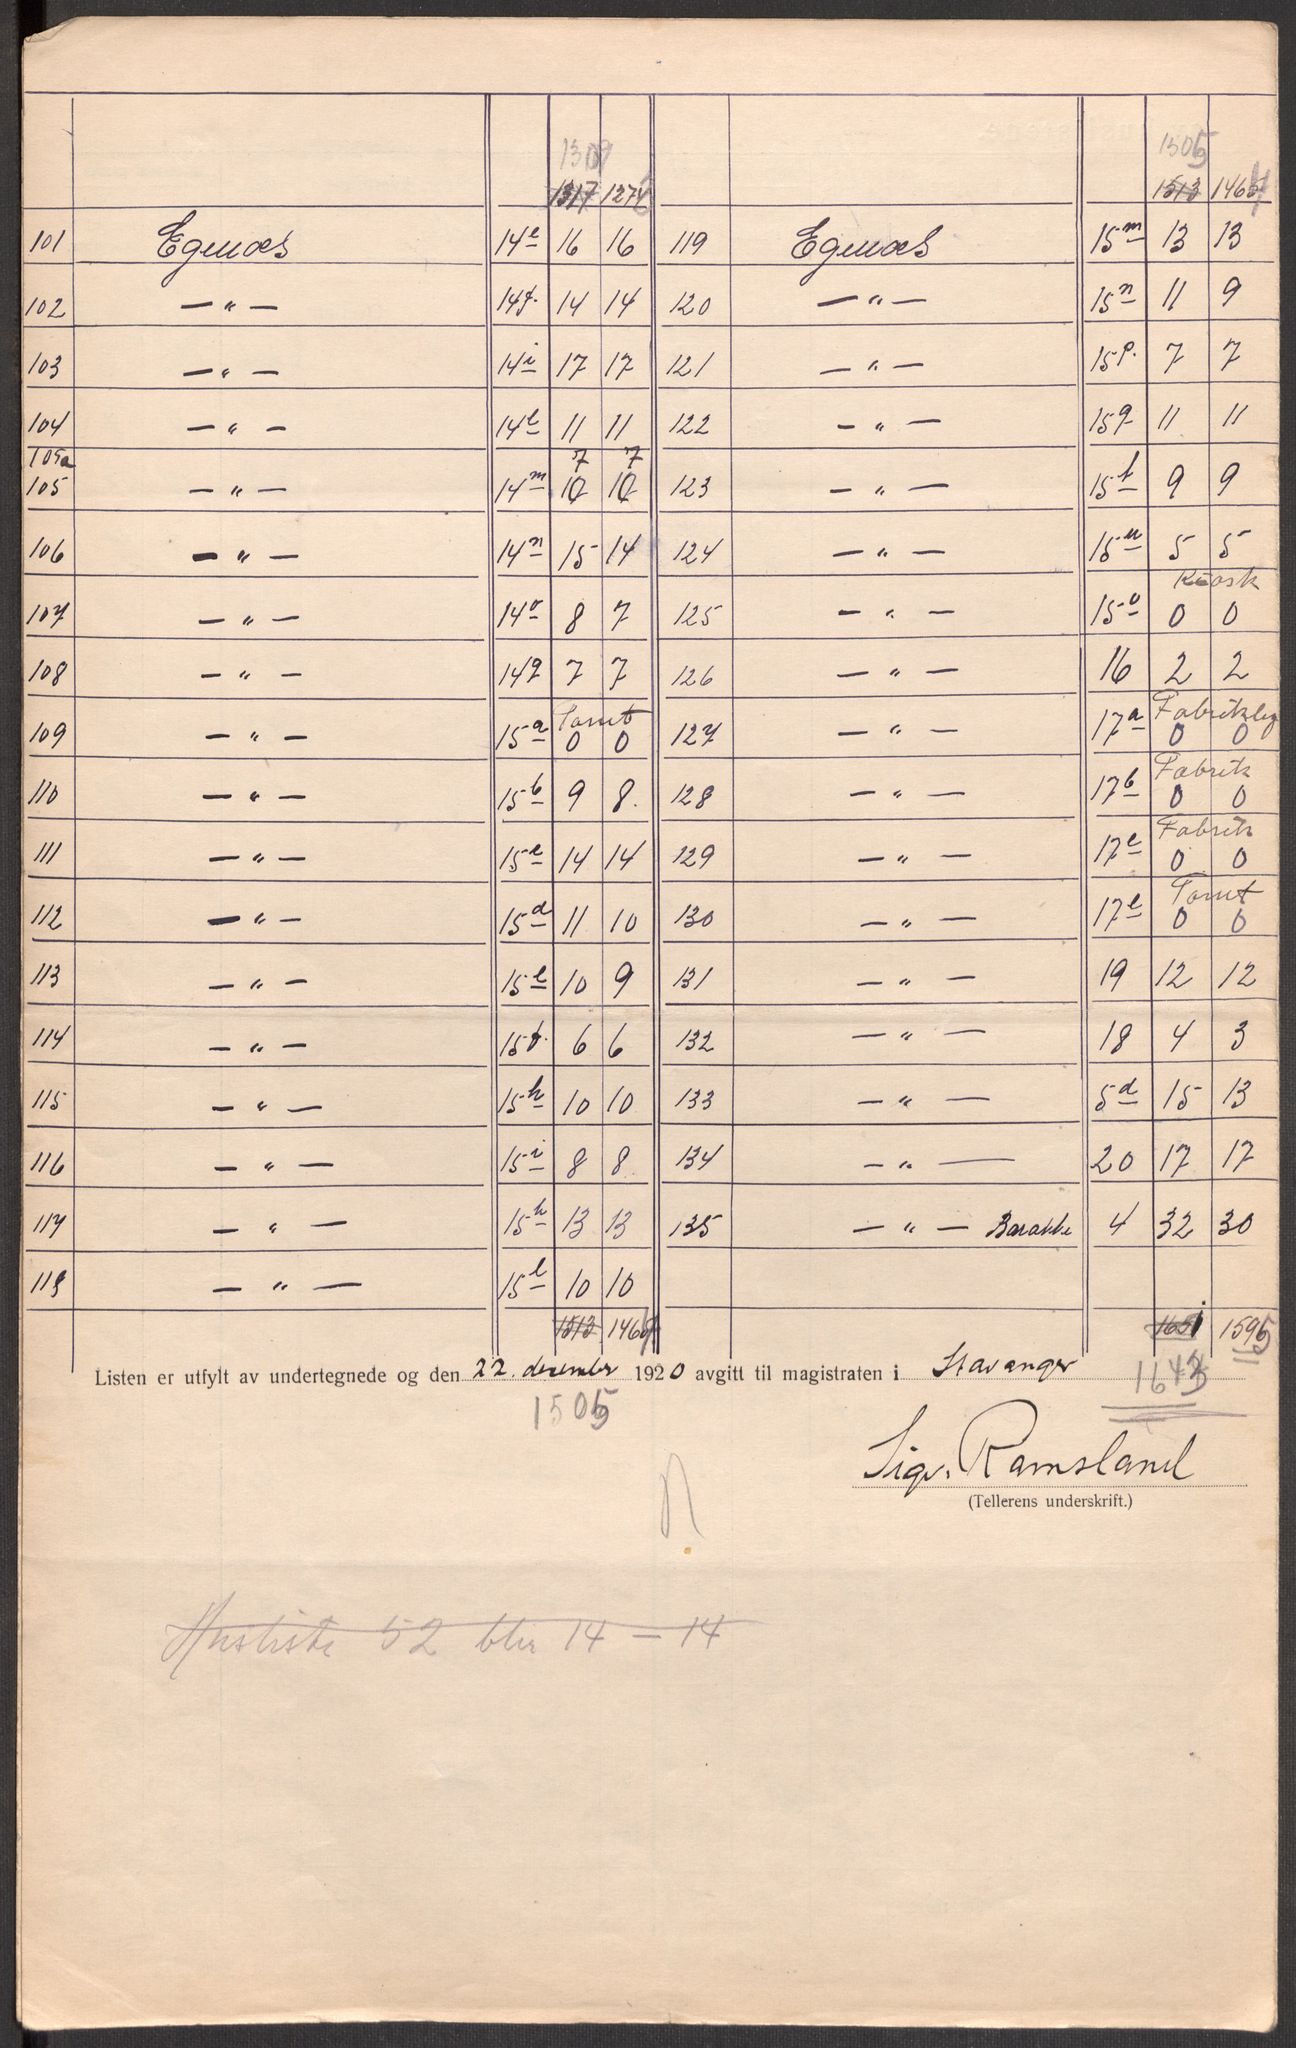 1317 1274
101 Egenæs 14e 16 16
102 — " — 14f. 14 14
103 — " — 14i 17 17
104 — " — 14l 11 11
105a 7 7
105 — " — 14m 10 10
106 — " — 14n 15 14
107 — " — 14o 8 7
108 — " — 14q 7 7
109 — " — 15a Tomt 0 0
110 — " — 15b 9 8.
111 — " — 15c 14 14
112 — " — 15d 11 10
113 — " — 15e 10 9
114 — " — 15f. 6 6
115 — " — 15h 10 10
116 — " — 15i 8 8
117 — " — 15k 13 13
118 — " — 15l 10 10
1513 146
1305
1513 146
119 Egenæs 15m 13 13
120 — " — 15n 11 9
121 — " — 15p. 7 7
122 — " — 15q 11 11
123 — " — 15t 9 9
124 — " — 15u 5 5
125 — " — 15v Kiosk 0 0
126 — " — 16 2 2
127 — " — 17a 0 0
128 — " — 17b Fabrik 0 0
129 — " — 17c Fabrik 0 0
130 — " — 17e Tomt 0 0
131 — " — 19 12 12
132 — " — 18 4 3
133 — " — 5d 15 13
134 — " — 20 17 17
135 — " — Barakke 4 32 30
1651 1595
Listen er utfylt av undertegnede og den 22. desember 1920 avgitt til magistraten i Stavanger
1505
Sigv. Ramsland
(Tellerens underskrift.)
Husliste 52 blir 14 — 14